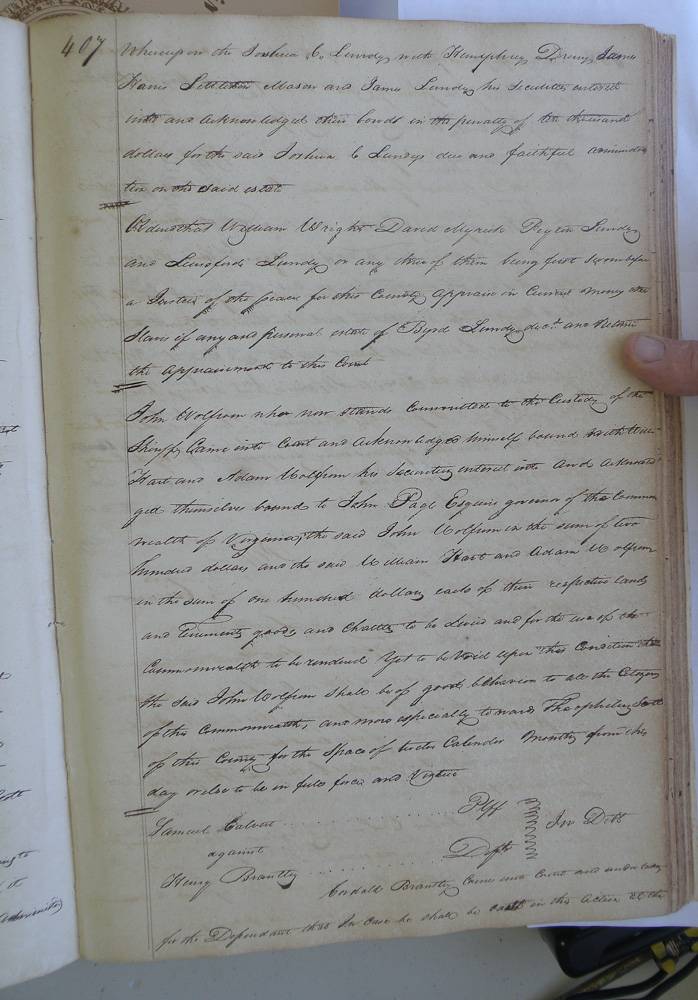 407
Whereupon the Joshua C. Lundy with Humphrey Drewry James
Harris Littleton Mason and James Lundy his Securities entered
into and acknowledged their bonds in the penalty of ten thousand
dollars for the said Joshua C Lundys due and faithful administra
tion on the said estate
Ordered that William Wright David Myrick Peyton Lundy
and Lunsford Lundy or any three of them being first sworn before
a Justice of the peace for this County appraise in Current money the
Slaves if any and personal estate of Byrd Lundy decd. and return
the appraisement to this Court
John Wolfrom who now stands Committed to the Custody of the
Sheriff, Came into Court and acknowledged himself bound with Will
Hart and Adam Wolfrom his Securities entered into and acknowled
ged themselves bound to John Page Esquire governor of the Common
wealth of Virginia, the said John Wolfrom in the sum of two
hundred dollars and the said William Hart and Adam Wolfrom
in the sum of one hundred dollars each of their respective lands
and Tenements goods and Chattles to be levied and for the use of the
Commonwealth to be rendered Yet to be Void upon this Condition that
the said John Wolfrom shall be of good behavior to all the Citizens
of this Commonwealth, and more especially towards Theophilus Scott
of this County for the Space of twelve Calender Months from this
day or else to be in full force and Virtue
Samuel Calvert . . . . . . . . . . . . Plff
against
In Debt
Henry Brantley . . . . . . . . . . . Deft
Brantley Came into Court and undertakes
for the Defendant that In case he shall be cast in this action &C the